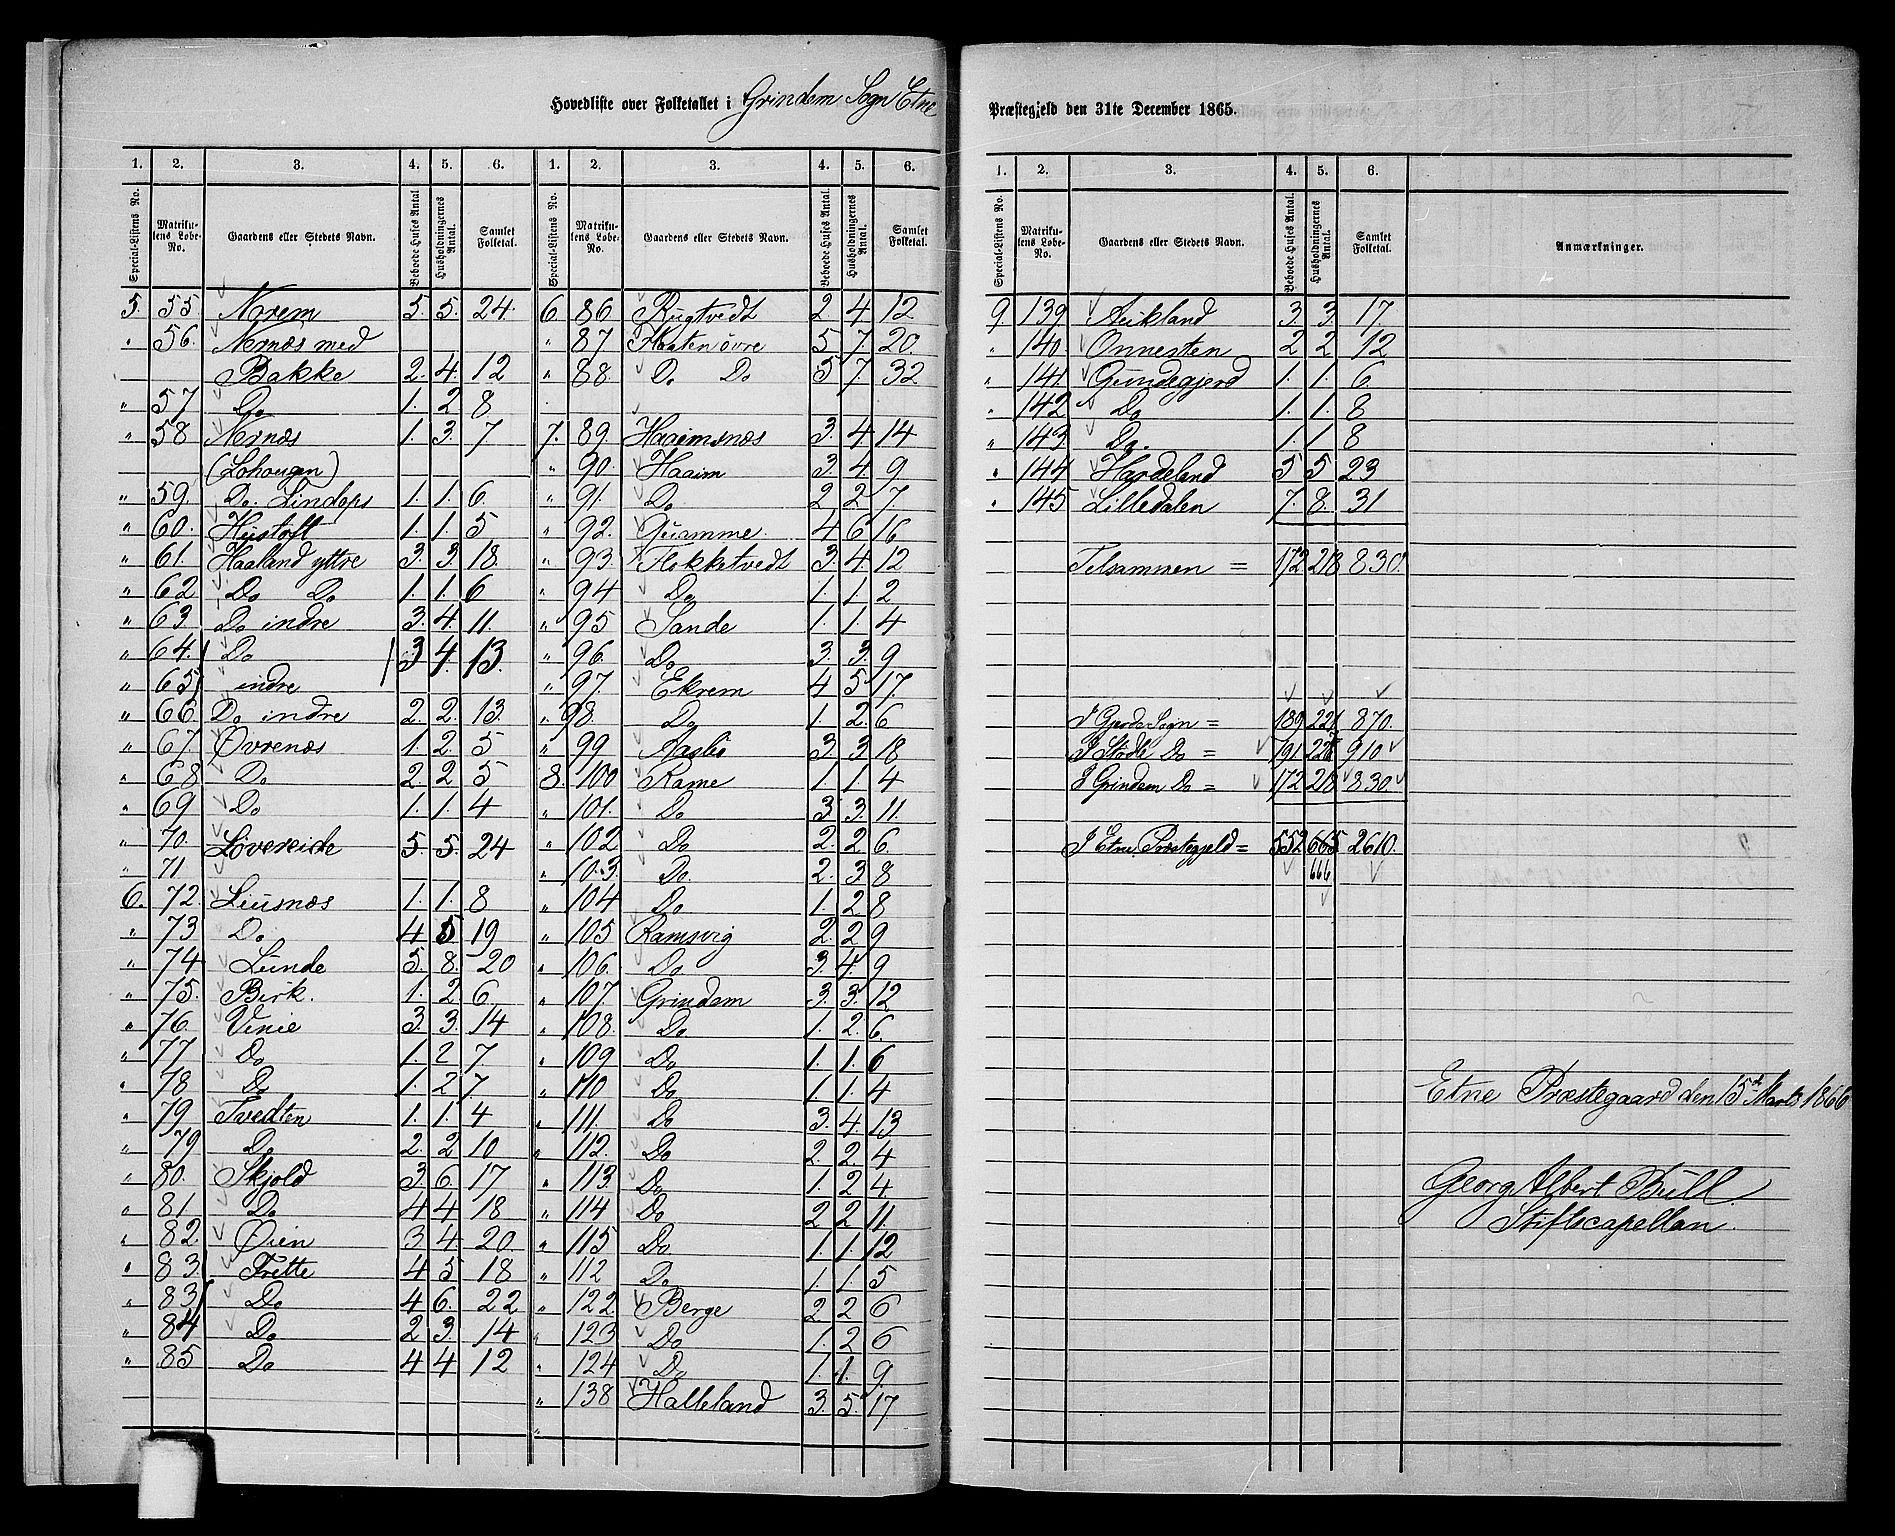 Hovedliste over Folketallet i Grindem Sogn Etne Præstegjeld den 31te December 1865.
1. 2. 3. 4. 5. 6. 1. 2. 3. 4. 5. 6.
Special-Listens No. Matrikulens Løbe-No. Gaardens eller Stedets Navn. Beboede Huses Antal. Husholdningernes Antal. Samlet Folketal. Special-Listens No. Matrikulens Løbe-No. Gaardens eller Stedets Navn. Beboede Huses Antal. Husholdningernes Antal. Samlet Folketal.
5. 55 Norem 5. 5. 24.
" 56. Nernæs med
Bakke 2. 4. 12
" 57 Do 1. 2 8
" 58 Nernæs 1. 3. 7
(Lohougen)
" 59. Do. Lindaas 1. 1. 6.
" 60. Hustoft 1. 1. 5
" 61. Haaland yttre 3. 3. 18.
" 62 Do Do 1. 1. 6
" 63. Do indre 3. 4. 11.
" 64. Do 3 4. 13.
" 65 indre
" 66 Do indre 2. 2. 13.
" 67. Øvrenæs 1. 2. 5
" 68 Do 2. 2. 5
" 69 Do 1. 1. 4
" 70. Løvereide 5. 5. 24
" 71
6. 72. Liusnæs 1. 1. 8
" 73 Do. 4 5 19
" 74 Lunde 5. 8. 20
" 75. Birk. 1. 2 6.
" 76. Vinie 3. 3. 14
" 77 Do 1. 2 7.
" 78. Do 1. 2 7.
" 79 Tvedten 1. 1. 4
" 79 Do 2. 2 10
" 80. Skjold 3. 6. 17
" 81 Do 4 4 18
" 82. Øien 3 4. 20.
" 83. Frette 4 5 18
" 83 Do 4 6. 22
" 84 Do 2 3. 14
" 85 Do 4 4 12
6. 86 Rugtvedt 2 4 12
" 87 Flaaten øvre 5 7 20.
" 88. Do Do 5 7. 32
7. 89. Haaimsnæs 3. 4 14
" 90. Haaim 3. 4. 9
" 91. Do 2 2 7
" 92. Quamme 4 6 16
" 93. Flokketvedt 3. 4. 12
" 94 Do 1. 1. 2
" 95 Sande 1. 1. 4
" 96. Do 3. 3. 9
" 97. Ekrem 4 5 17.
" 98. Do 1. 2. 6
" 99 Aasbø 3. 3 18
8. 100 Rame 1. 1 4
" 101. Do 3 3. 11.
" 102 Do 2. 2 6.
" 103. Do. 2. 3 8
" 104 Do 1. 2 8
" 105 Ramsvig 2. 2 9
" 106. Do 3. 4. 9
" 107. Grindem 3. 3. 12
" 108. Do 1. 2. 6.
" 109 Do 1. 1. 6
" 110 Do 1. 1. 4
" 111. Do 3. 4. 13
" 112. Do 2. 2. 4
" 113. Do 1. 2 4
" 114 Do 2 2 11.
" 115 Do 1. 1. 12
" 112 Do 1. 1. 5
" 122 Berge 2 2 6
" 123 Do 1. 2 6
" 124 Do 1. 1. 9.
" 138 Halleland 3. 5. 17
1. 2. 3. 4. 5. 6.
Special-Listens No. Matrikulens Løbe-No. Gaardens eller Stedets Navn. Beboede Huses Antal. Husholdningernes Antal. Samlet Folketal. Anmærkninger.
9. 139 Aukland 3. 3. 17.
" 140. Onnesten 2 2 12
" 141. Gundegjerd 1. 1. 6.
" 142 Do 1. 1. 8
" 143. Do. 1. 1 8
" 144 Hardeland 5 5 23
" 145 Lilledalen 7. 8. 31
Tilsammen = 172 218 830.
I Gjerde Sogn = 189 221 870.
I Stødle Do = 191 910
I Grindem Do = 172 218 830
I Etne Præstegjeld = 552 665 2610.
666
Etne Præstegaard den 15de Marts 1866
Georg Albert Bull
Stiftscapellan.